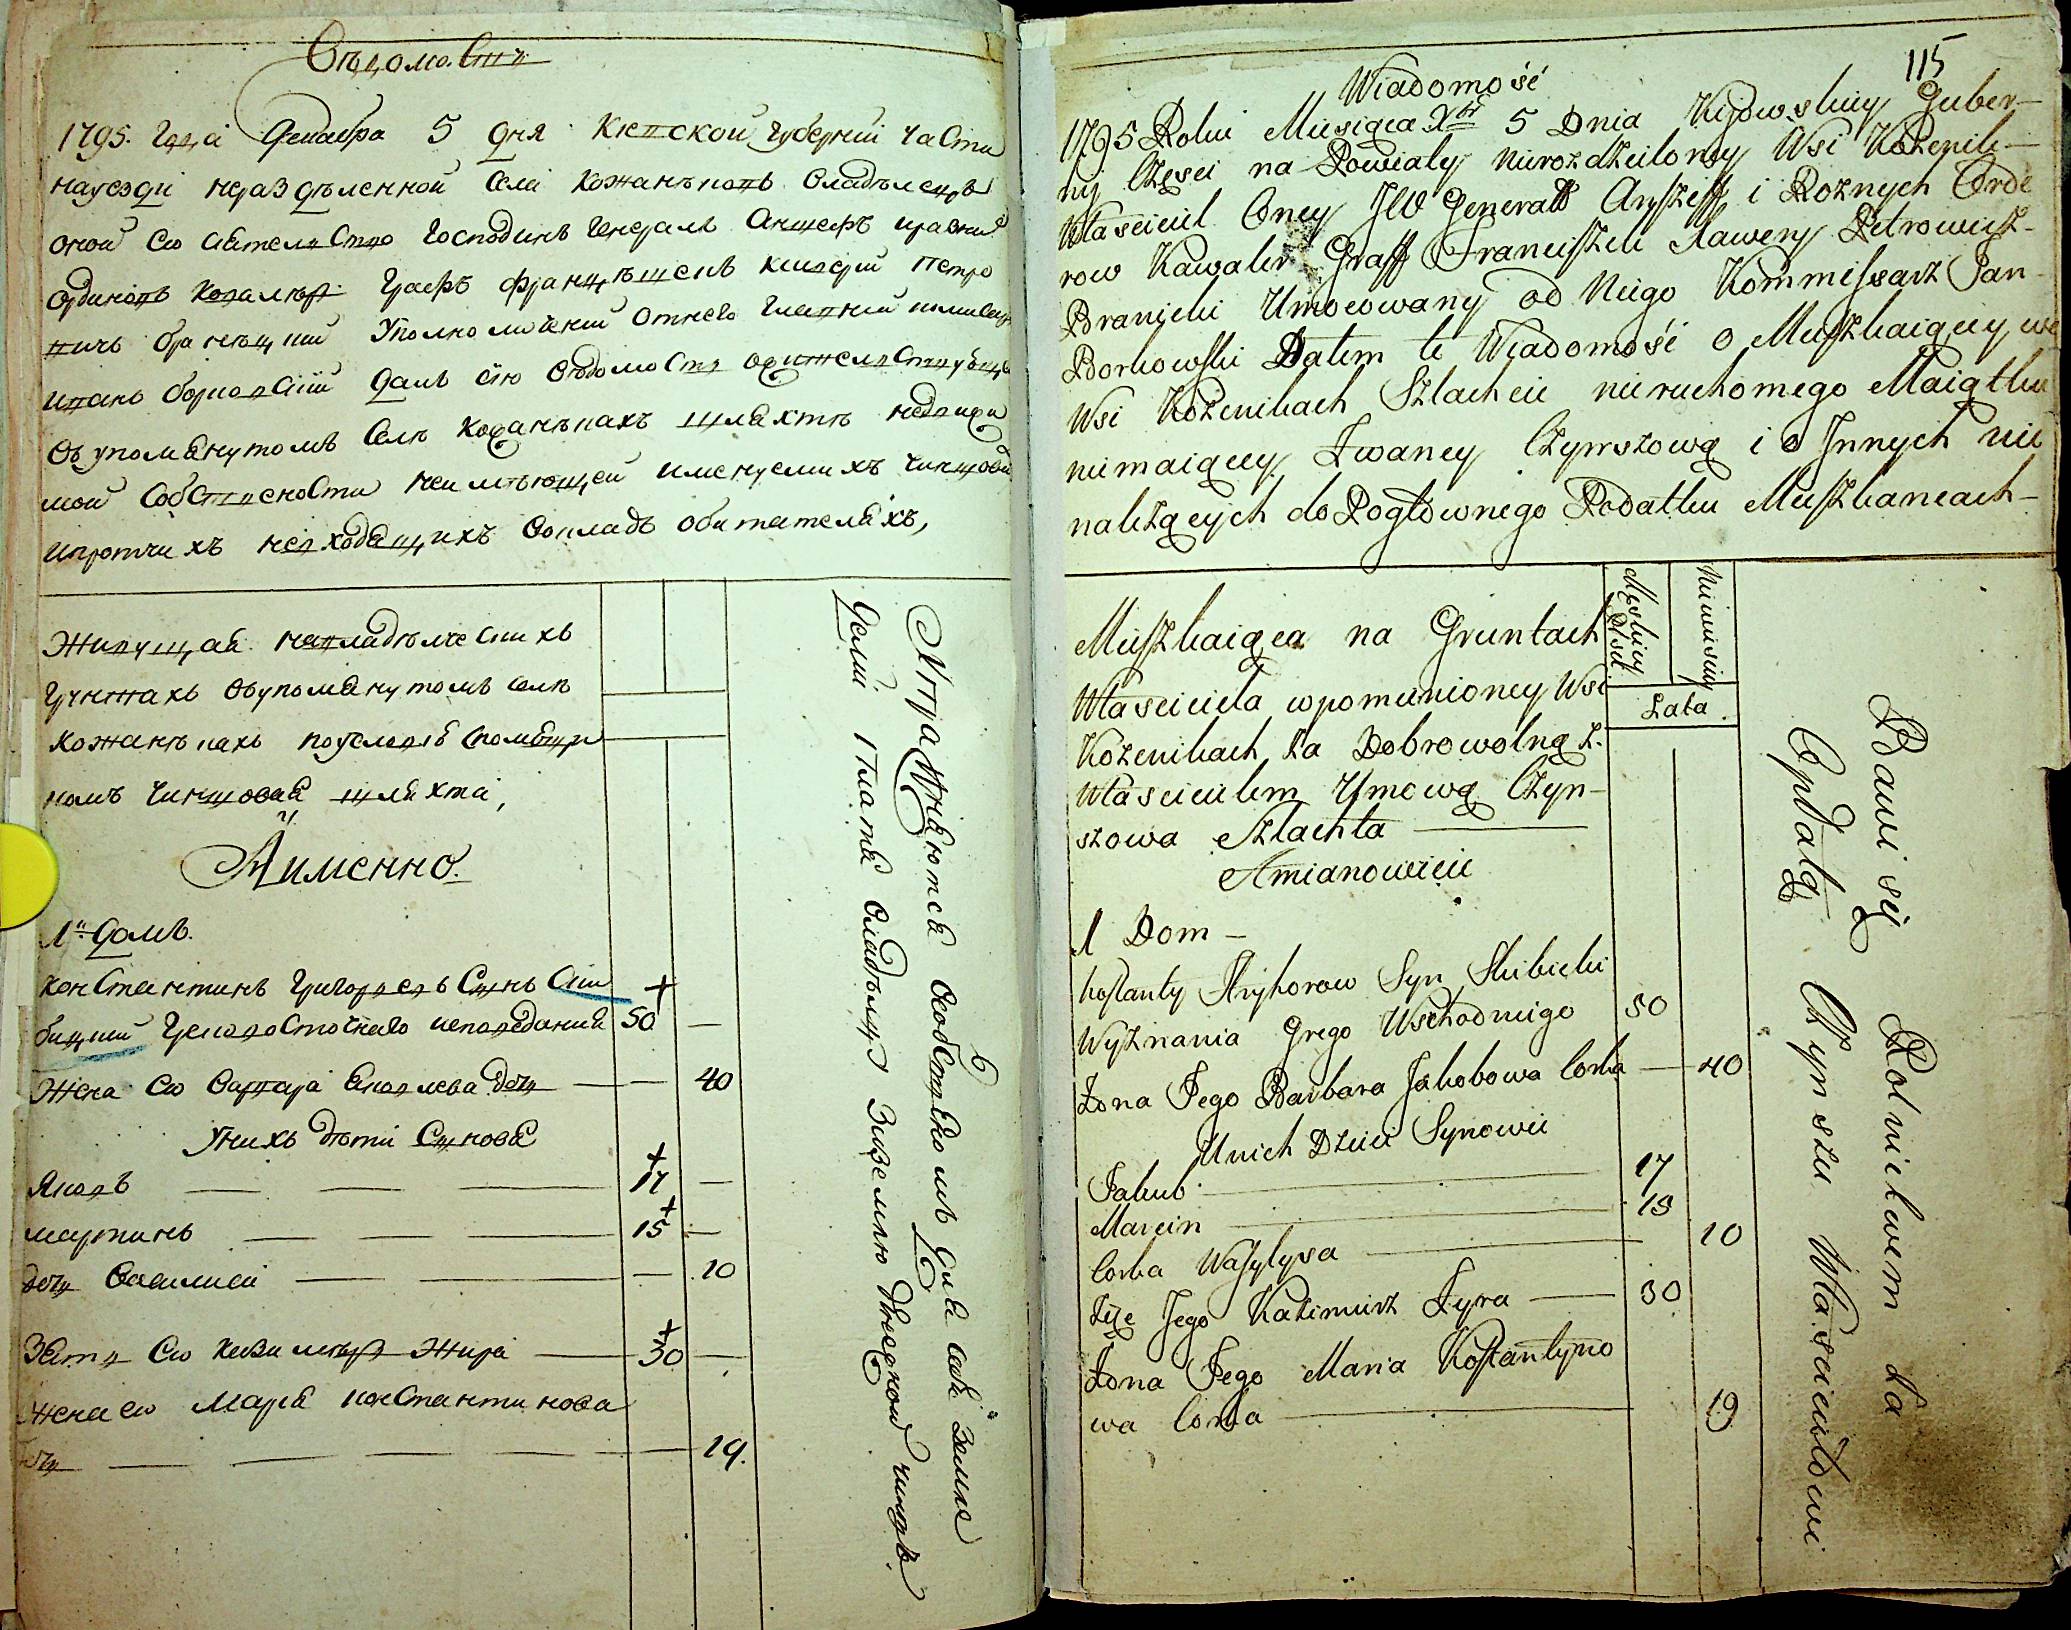 Вѣдомость
1795. Года Декабря 5 дня Кіевской Губерніи части
науезди неразделенной села Кожанъковъ владѣлецъ
оной его сіятелство Господинъ Генералъ Аншефъ иразныхъ
ординовъ Кавалеръ Графъ Францѣшекъ Ксаверій Петро
вичъ браницкий Уполномоченій отнего главній комисаръ
иванъ борковскій далъ сію вѣдомость ожителствующей
въупомянутомъ селѣ Кожанъкахъ шляхтѣ недвижи
мой собственности неимѣющей именуемихъ чиншовой
ипротчихъ невходящихъ вокладъ обитателяхъ,
Живущая навладѣлческихъ
грунтахъ въупомянутомъ селѣ
кожанъкахъ поусловію спомѣщи
комъ чиншовая шляхта,
Аименно.
1й домъ.
Константинъ Григорьевъ Синъ Ски
бицкий Грековосточнаго исповеданія 50 —
Жена его Варвара Яковлева дочь — — 40
Унихъ дѣти Синовя
Яковъ — — — 17 —
мартинъ — — — 15 —
дочь Василиса — — — 10
Зять его Казимеръ Жира — 30 —
Жена его Марія Константинова
дочь — — — — 19.
Упражняются особствено въ дилехъ земле
делій і платя владѣлцу Зиземлю денежной чиншъ
115
Wiadomość
1795 Roku Miesiąca Xbr 5 Dnia Kijowskiey Guber-
nij Części na Powiaty nierozdzieloney Wsi Kożenik-
Własciciel Oney JW Generall Anszeff i Rożnych Orde
row Kawaler Graff Franciszek Xawery Petrowicz-
Branicki Umocowany od Niego Kommissarz Jan-
Borkowski Dałem te Wiadomość o Mieszkaiącey we
Wsi Kożenikach Szlachcie nieruchomego Maiątku
niemaiącey Zwaney Czynszową i o Jnnych nie
należących do Pogłownego Podatku Mieszkancach-
Mieszkaiąca na Gruntach
Własciciela wpomenioney Wsi
Kożenikach za Dobrowolną z-
Włascicielem Umową Czyn-
szowa Szlachta —
Amianowicie
Męskiey Płci
Niewiesciey
Lata.
1 Dom —
Kostanty Hryhorow Syn Skibicki
Wyznania Grego Wschodniego 50
Żona Jego Barbara Jakobowa Corka — 40
U nich Dzieci Synowie
Jakub — 17
Marcin — 15
Corka Wasylysa — 10
Zięć Jego Kazimierz Żyra — 30
Żona Jego Maria Kostantyno
wa Corka — 19
Bawi się Rolnictwem za
Opłatą Czynszu Włascicielowi